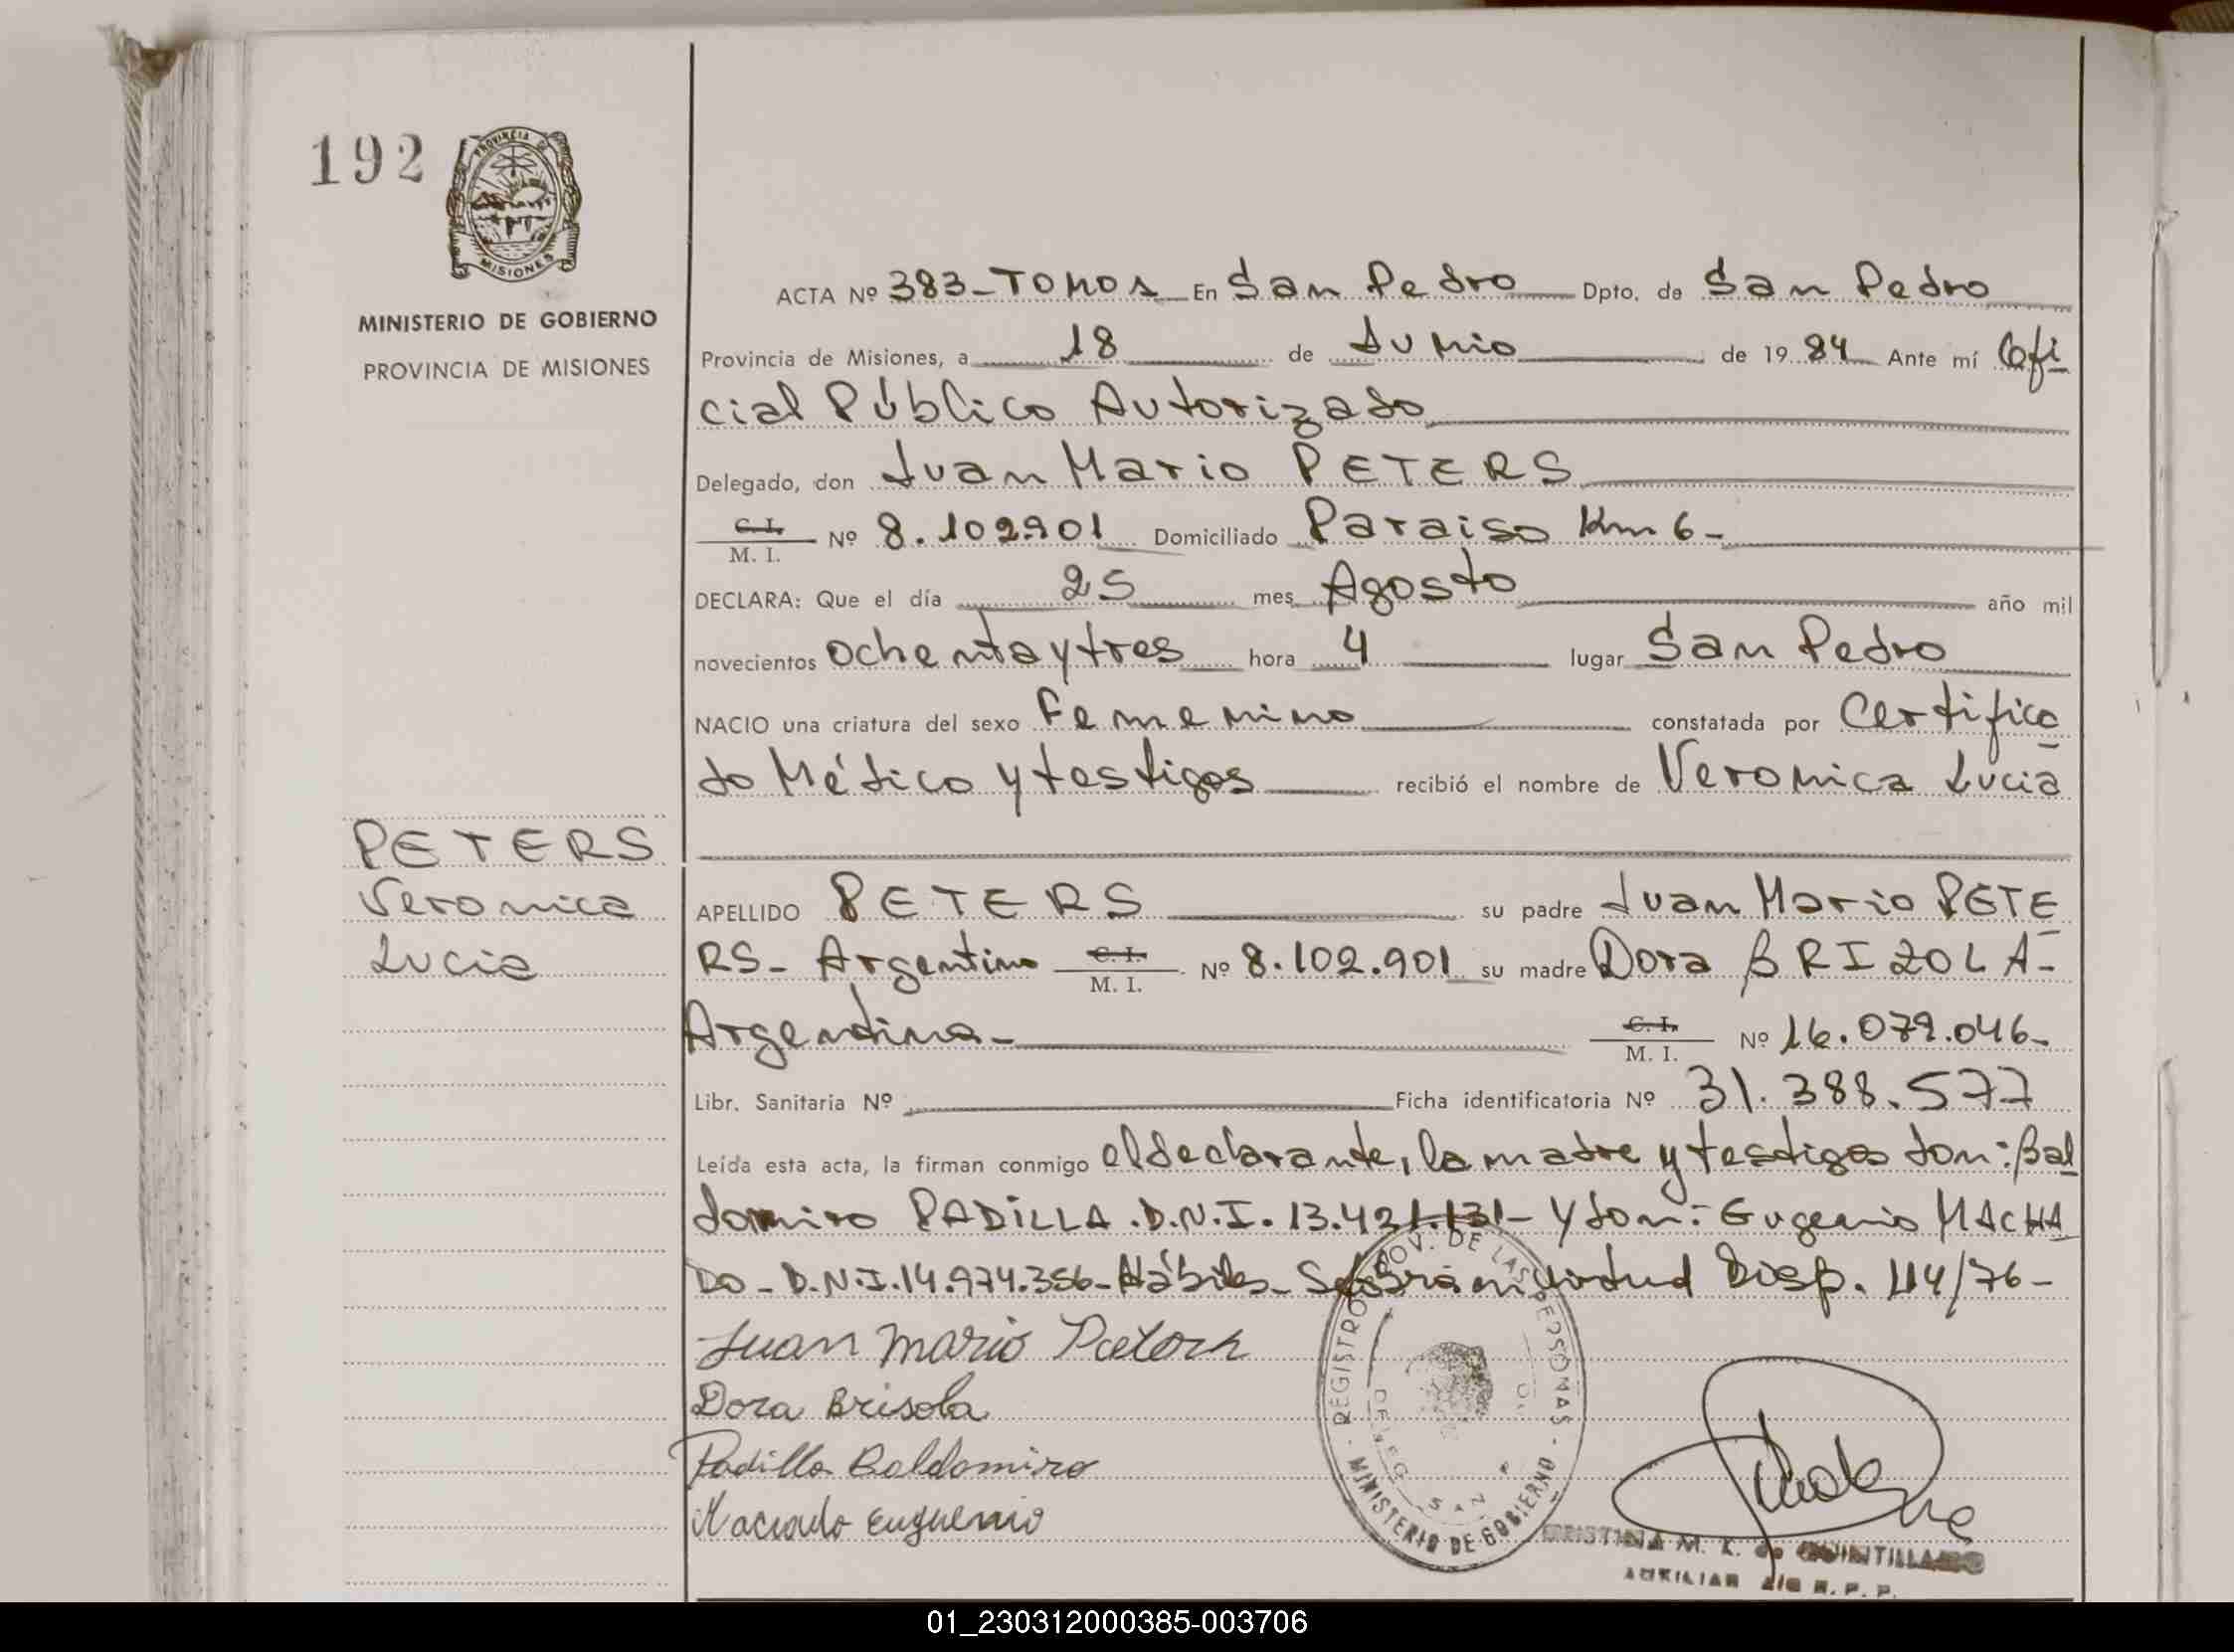 192
PROVINCIA DE
MISIONES
MINISTERIO DE GOBIERNO
PROVINCIA DE MISIONES
ACTA Nº 383-TOMO1 En San Pedro Dpto. de San Pedro
Provincia de Misiones, a 18 de Junio de 19 84 Ante mí Ofi
cial Público Autorizado
Delegado, don Juan Mario PETERS
C. I. / M. I. Nº 8.102.901 Domiciliado Paraiso Km 6-
DECLARA: Que el día 25 mes Agosto año mil
novecientos ochenta y tres hora 4 lugar San Pedro
NACIO una criatura del sexo Femenino constatada por Certifica
do Médico y testigos recibió el nombre de Veronica Lucia
PETERS
Veronica
Lucia
APELLIDO PETERS su padre Juan Mario PETE
RS- Argentino C. I. / M. I. Nº 8.102.901 su madre Dora BRIZOLA-
Argentina- C. I. / M. I. Nº 16.079.046-
Libr. Sanitaria Nº Ficha identificatoria Nº 31.388.577
Leída esta acta, la firman conmigo el declarante, la madre y testigos don: Bal
domiro PADILLA.D.N.I. 13.421.131- Y don: Eugenio MACHA
DO-D.N.I.14.974.356-Hábiles- Se labra en virtud Disp. 114/76-
Juan Mario
Dora Brisola
Padilla Baldomiro
Eugenio
REGISTRO PROV. DE LAS PERSONAS
MINISTERIO DE GOBIERNO
DELEG. SAN
CRISTINA M. K. de QUINTILLANO
AUXILIAR R. P. P.
01_230312000385-003706